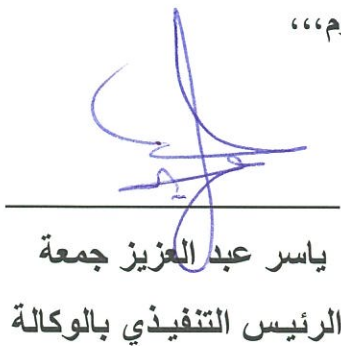 م،،،
ياسر عبد العزيز جمعة
الرئيس التنفيذي بالوكالة